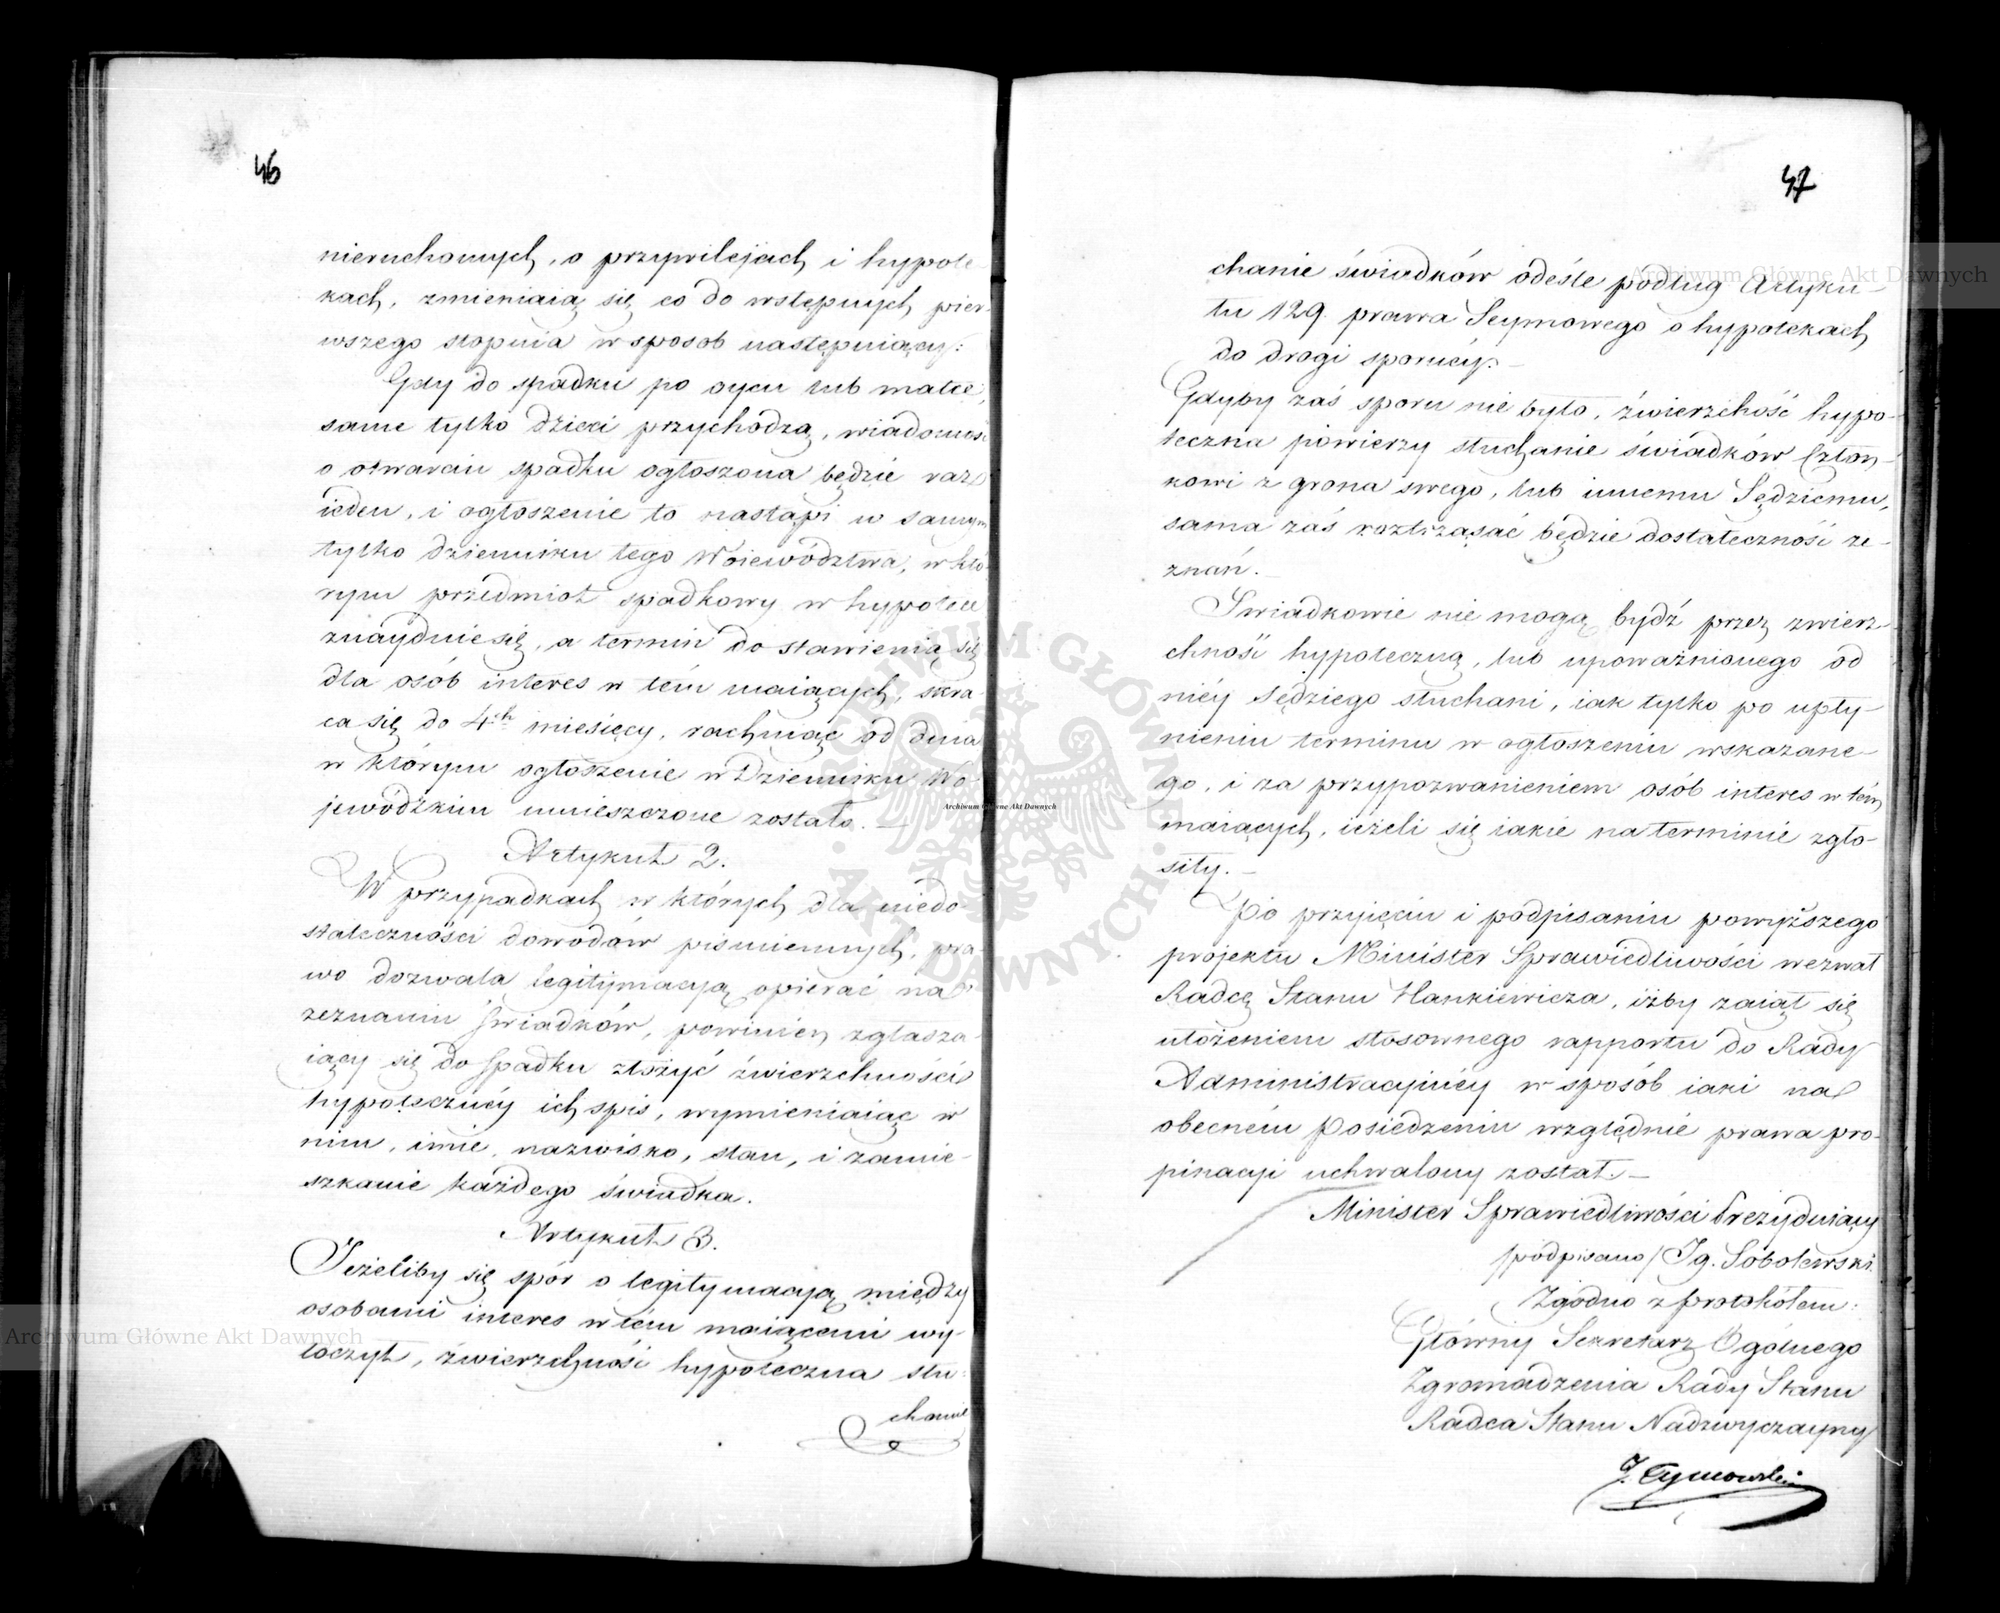 46
nieruchomych, o przywilejach i hypote-
kach, zmieniaią się co do wstępnych pier-
wszego stopnia w sposob następuiący:
Gdy do spadku po oycu lub matce,
same tylko dzieci przychodzą, wiadomość
o otwarciu spadku ogłoszona będzie raz
ieden, i ogłoszenie to nastąpi w samym
tylko dzienniku tego Woiewództwa, w któ-
rym przedmiot spadkowy w hypotece
znayduie się, a termin do stawienia się
dla osób interes w tém maiących, skra-
ca się do 4ch miesięcy, rachuiąc od dnia
w którym ogłoszenie w Dzienniku Wo-
jewódzkim umieszczone zostało. —
Artykuł 2.
W przypadkach w których dla niedo-
stateczności dowodów piśmiennych, pra-
wo dozwala legitymacyą opierać na
zeznaniu świadków, powinien zgłasza-
iący się do spadku złożyć zwierzchności
hypotecznéy ich spis, wymieniaiąc w
nim, imie, nazwisko, stan, i zamie-
szkanie każdego świadka.
Artykuł 3.
Jeżeliby się spór o legitymacyą między
osobami interes w tém maiącemi wy-
toczył, zwierzchność hypoteczna słu-
chanie
47
chanie świadków odeśle podług Artyku-
łu 129 prawa Seymowego o hypotekach
do drogi spornéy. —
Gdyby zaś sporu nie było, zwierzchość hypo-
teczna powierzy słuchanie świadków Człon-
kowi z grona swego, lub innemu Sędziemu,
sama zaś roztrząsać będzie dostateczność ze-
znań. —
Swiadkowie nie mogą bydź przez zwierz-
chność hypoteczną, lub upoważnionego od
niéy Sędziego słuchani, iak tylko po upły-
nieniu terminu w ogłoszeniu wskazane-
go, i za przypozwanieniem osób interes w tém
maiących, ieżeli się iakie na terminie zgło-
siły. —
Po przyięciu i podpisaniu powyższego
projektu Minister Sprawiedliwości wezwał
Radcę Stanu Hankiewicza, iżby zaiął się
ułożeniem stosownego rapportu do Rady
Administracyinéy w sposób iaki na
obecném Posiedzeniu względnie prawa pro-
pinacyi uchwalony został. —
Minister Sprawiedliwości Prezyduiący
/podpisano/ Ig. Sobolewski
Zgodno z protokółem:
Główny Sekretarz Ogólnego
Zgromadzenia Rady Stanu
Radca Stanu Nadzwyczayny
J. Tymowski
Archiwum Główne Akt Dawnych
Archiwum Główne Akt Dawnych
Archiwum Główne Akt Dawnych
ARCHIWUM GŁÓWNE · AKT DAWNYCH ·